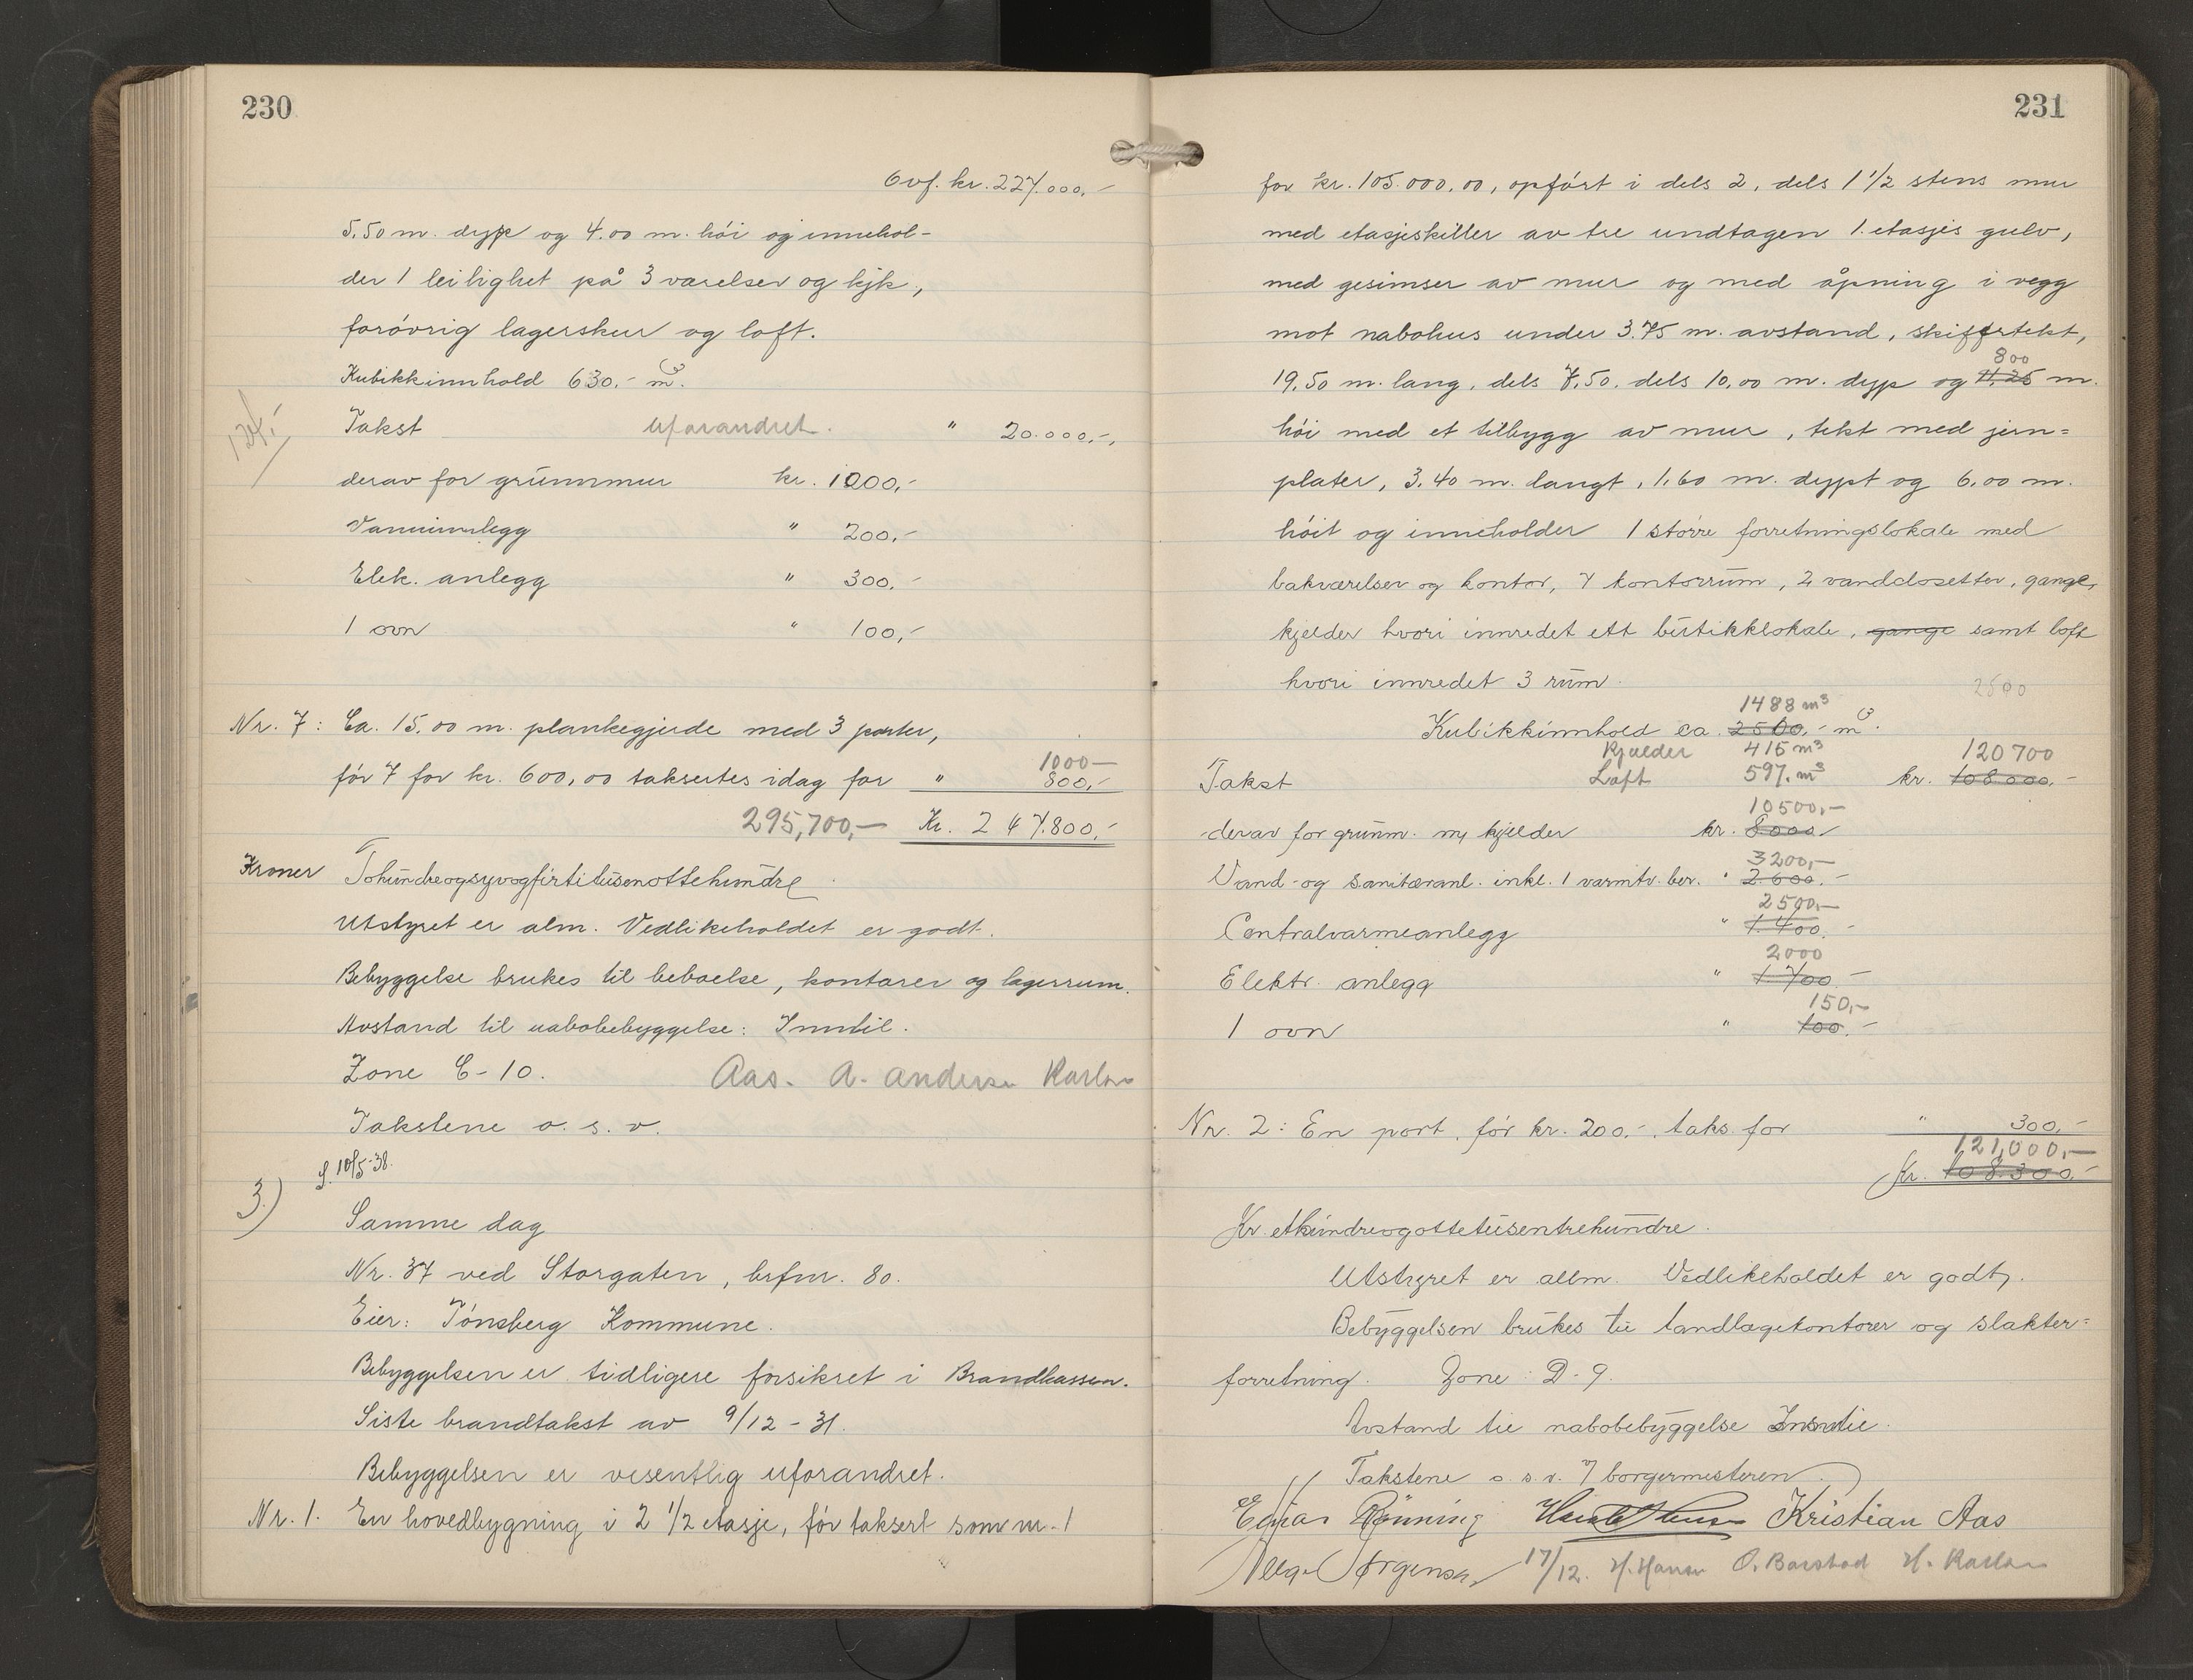 230
Ovf. kr. 227.000,-
5,50 m. dyp og 4.00 m. hói og innehol-
der 1 leilighet på 3 værelser og kjk,
forøvrig lagerskur og loft.
Kubikkinnhold 630,- m³.
Takst uforandret. " 20.000,-,
derav for grunnmur kr. 1000,-
Vanninnlegg " 200,-
Elek. anlegg " 300,-
1 ovn " 100,-
Nr. 7: Ca. 15,00 m. plankegjerde med 3 porter,
1000-
før 7 for kr. 600,00 taksertes idag for " 800,-
295,700,- Kr. 247.800,-
Kroner Tohundreogsyvogfirtitusenottehundre
Utstyret er alm. Vedlikeholdet er godt.
Bebyggelse brukes til beboelse, kontorer og lagerrum.
Avstand til nabobebyggelse: Inntil.
Zone C-10. Aas. A. Andersen Karlsen
Takstene o. s. v.
S. 10/5-38.
3)
Samme dag
Nr. 37 ved Storgaten, brfnr. 80.
Eier: Tónsberg Kommune.
Bebyggelsen er tidligere forsikret i Brandkassen.
Siste brandtakst av 9/12-31.
Bebyggelsen er vesentlig uforandret.
Nr. 1. En hovedbygning i 2 1/2 etasje, før taksert som nr. 1
231
for kr. 105.000,00, opført i dels 2, dels 1 1/2 stens mur
med etasjeskiller av tre undtagen 1. etasjes gulv,
med gesimser av mur og med åpning i vegg
mot nabohus under 3.75 m. avstand, skiffertekt,
800
19,50 m. lang, dels 7,50, dels 10,00 m. dyp og 11,25 m.
hói med et tilbygg av mur, tekt med jern=
plater, 3,40 m. langt, 1,60 m. dypt og 6,00 m.
hóit og inneholder 1 større forretningslokale med
bakværelser og kontor, 7 kontorrum, 2 vandclosetter, gange,
kjelder hvori innredet ett butikklokale, gange samt loft
hvori innredet 3 rum.
2500
1488 m³
Kubikkinnhold ca. 2500,- m³.
Kjelder 415 m³ 120700
Takst Loft 597. m³ kr. 108.000,-
10500,-
derav for grunm. m/ kjelder kr. 8000,-
3200,-
Vand- og sanitæranl. inkl. 1 varmtv. ber. " 2.600,-
2500,-
Centralvarmeanlegg " 1.400,-
2000
Elektr. anlegg " 1.700,-
150,-
1 ovn " 100,-
Nr. 2: En port, før kr. 200,-, taks. for " 300,-
121,000,-
Kr. 108.300,-
Kr. etthundreogottetusentrehundre.
Utstyret er allm. Vedlikeholdet er godt.
Bebyggelsen brukes til tandlægekontorer og slakter=
forretning. Zone: D-9.
Avstand til nabobebyggelse Inntil.
Takstene o. s. v. 7 borgermesteren
Edgar Rönning Kristian Aas
Jørgensen 17/12. H. Hansen O. Barstad H. Karlsen